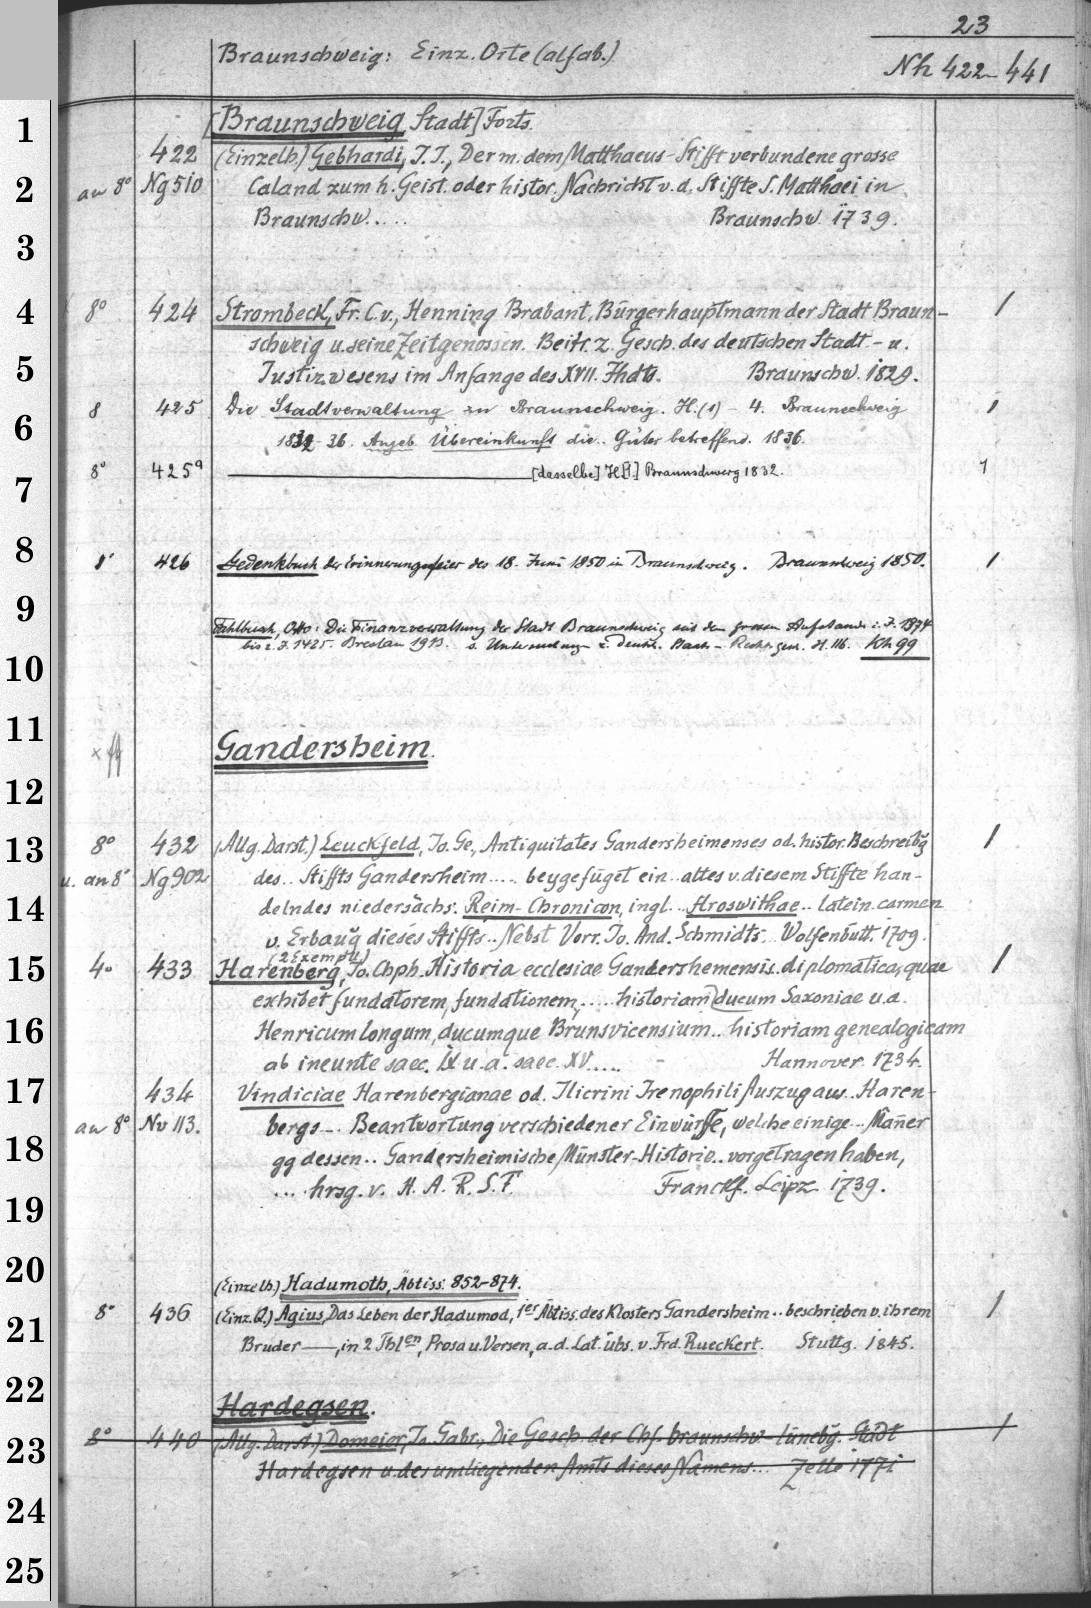 23
Braunschweig: Einz. Orte (alfab.)
Nh 422-441
1
[Braunschweig, Stadt] Forts.
422 (Einzelb.) Gebhardi, J. J., Der m. dem Matthaeus-Stifft verbundene grosse
2
an 8° Ng 510 Caland zum h. Geist. oder histor. Nachricht v. d. Stiffte S. Matthaei in
Braunschw..... Braunschw. 1739.
3
4
8° 424 Strombeck, Fr. C. v., Henning Brabant, Bürgerhauptmann der Stadt Braun- 1
schweig u. seine Zeitgenossen. Beitr. z. Gesch. des deutschen Stadt- u.
5
Justizwesens im Anfange des XVII. Jhdts. Braunschw. 1829.
8 425 Die Stadtverwaltung zu Braunschweig. H. (1) - 4. Braunschweig 1
6
1832-36. Angeb. Übereinkunft die.. Güter betreffend. 1836.
8° 425a [dasselbe] H[1.] Braunschweig 1832. 1
7
8
8° 426 Gedenkbuch der Erinnerungsfeier des 18. Juni 1850 in Braunschweig. Braunschweig 1850. 1
9
Fahlbusch, Otto: Die Finanzverwaltung der Stadt Braunschweig seit dem grossen Aufstande i. J. 1374
bis z. J. 1425. Breslau 1913. s. Untersuchungen z. Deutsch. Staats- Rechtsgesch. H. 116. Kh 99
10
11
Gandersheim.
12
8° 432 (Allg. Darst.) Leuckfeld, Jo. Ge., Antiquitates Gandersheimenses od. histor. Beschreibg 1
13
u. an 8° Ng 902 des.. Stiffts Gandersheim.... beygefüget ein.. altes v. diesem Stiffte han-
14
delndes niedersächs. Reim-Chronicon, ingl... Hroswithae.. latein. carmen
v. Erbaug dieses Stiffts.. Nebst Vorr. Jo. And. Schmidts. Wolfenbütt. 1709.
(2 Exempl.)
15
4° 433 Harenberg, Jo. Chph. Historia ecclesiae Gandershemensis.. diplomatica, quae 1
exhibet fundatorem, fundationem,.... historiam ducum Saxoniae u. a.
16
Henricum longum, ducumque Brunsvicensium.. historiam genealogicam
ab ineunte saec. IX u. a. saec. XV..... - Hannover 1734.
17
434 Vindiciae Harenbergianae od. Ilicrini Irenophili Auszug aus.. Haren-
an 8° Nv 113. bergs... Beantwortung verschiedener Einwürffe, welche einige... Männer
18
gg dessen.. Gandersheimische Münster-Historie.. vorgetragen haben,
... hrsg. v. H. A. R. S. F. Franckf. Leipz. 1739.
19
20
(Einzelb.) Hadumoth, Äbtiss. 852-874.
8° 436 (Einz. Q.) Agius, Das Leben der Hadumod, 1er Äbtiss. des Klosters Gandersheim.. beschrieben v. ihrem 1
21
Bruder —, in 2 Thlen, Prosa u. Versen, a. d. Lat. übs. v. Frd. Rueckert. Stuttg. 1845.
22
Hardegsen.
2° 440 (Allg. Darst.) Domeier, Jo. Gabr., Die Gesch. der Chf. braunschw-lünebg. Stadt 1
23
Hardegsen u. des umliegenden Amts dieses Namens... Zelle 1771
24
25